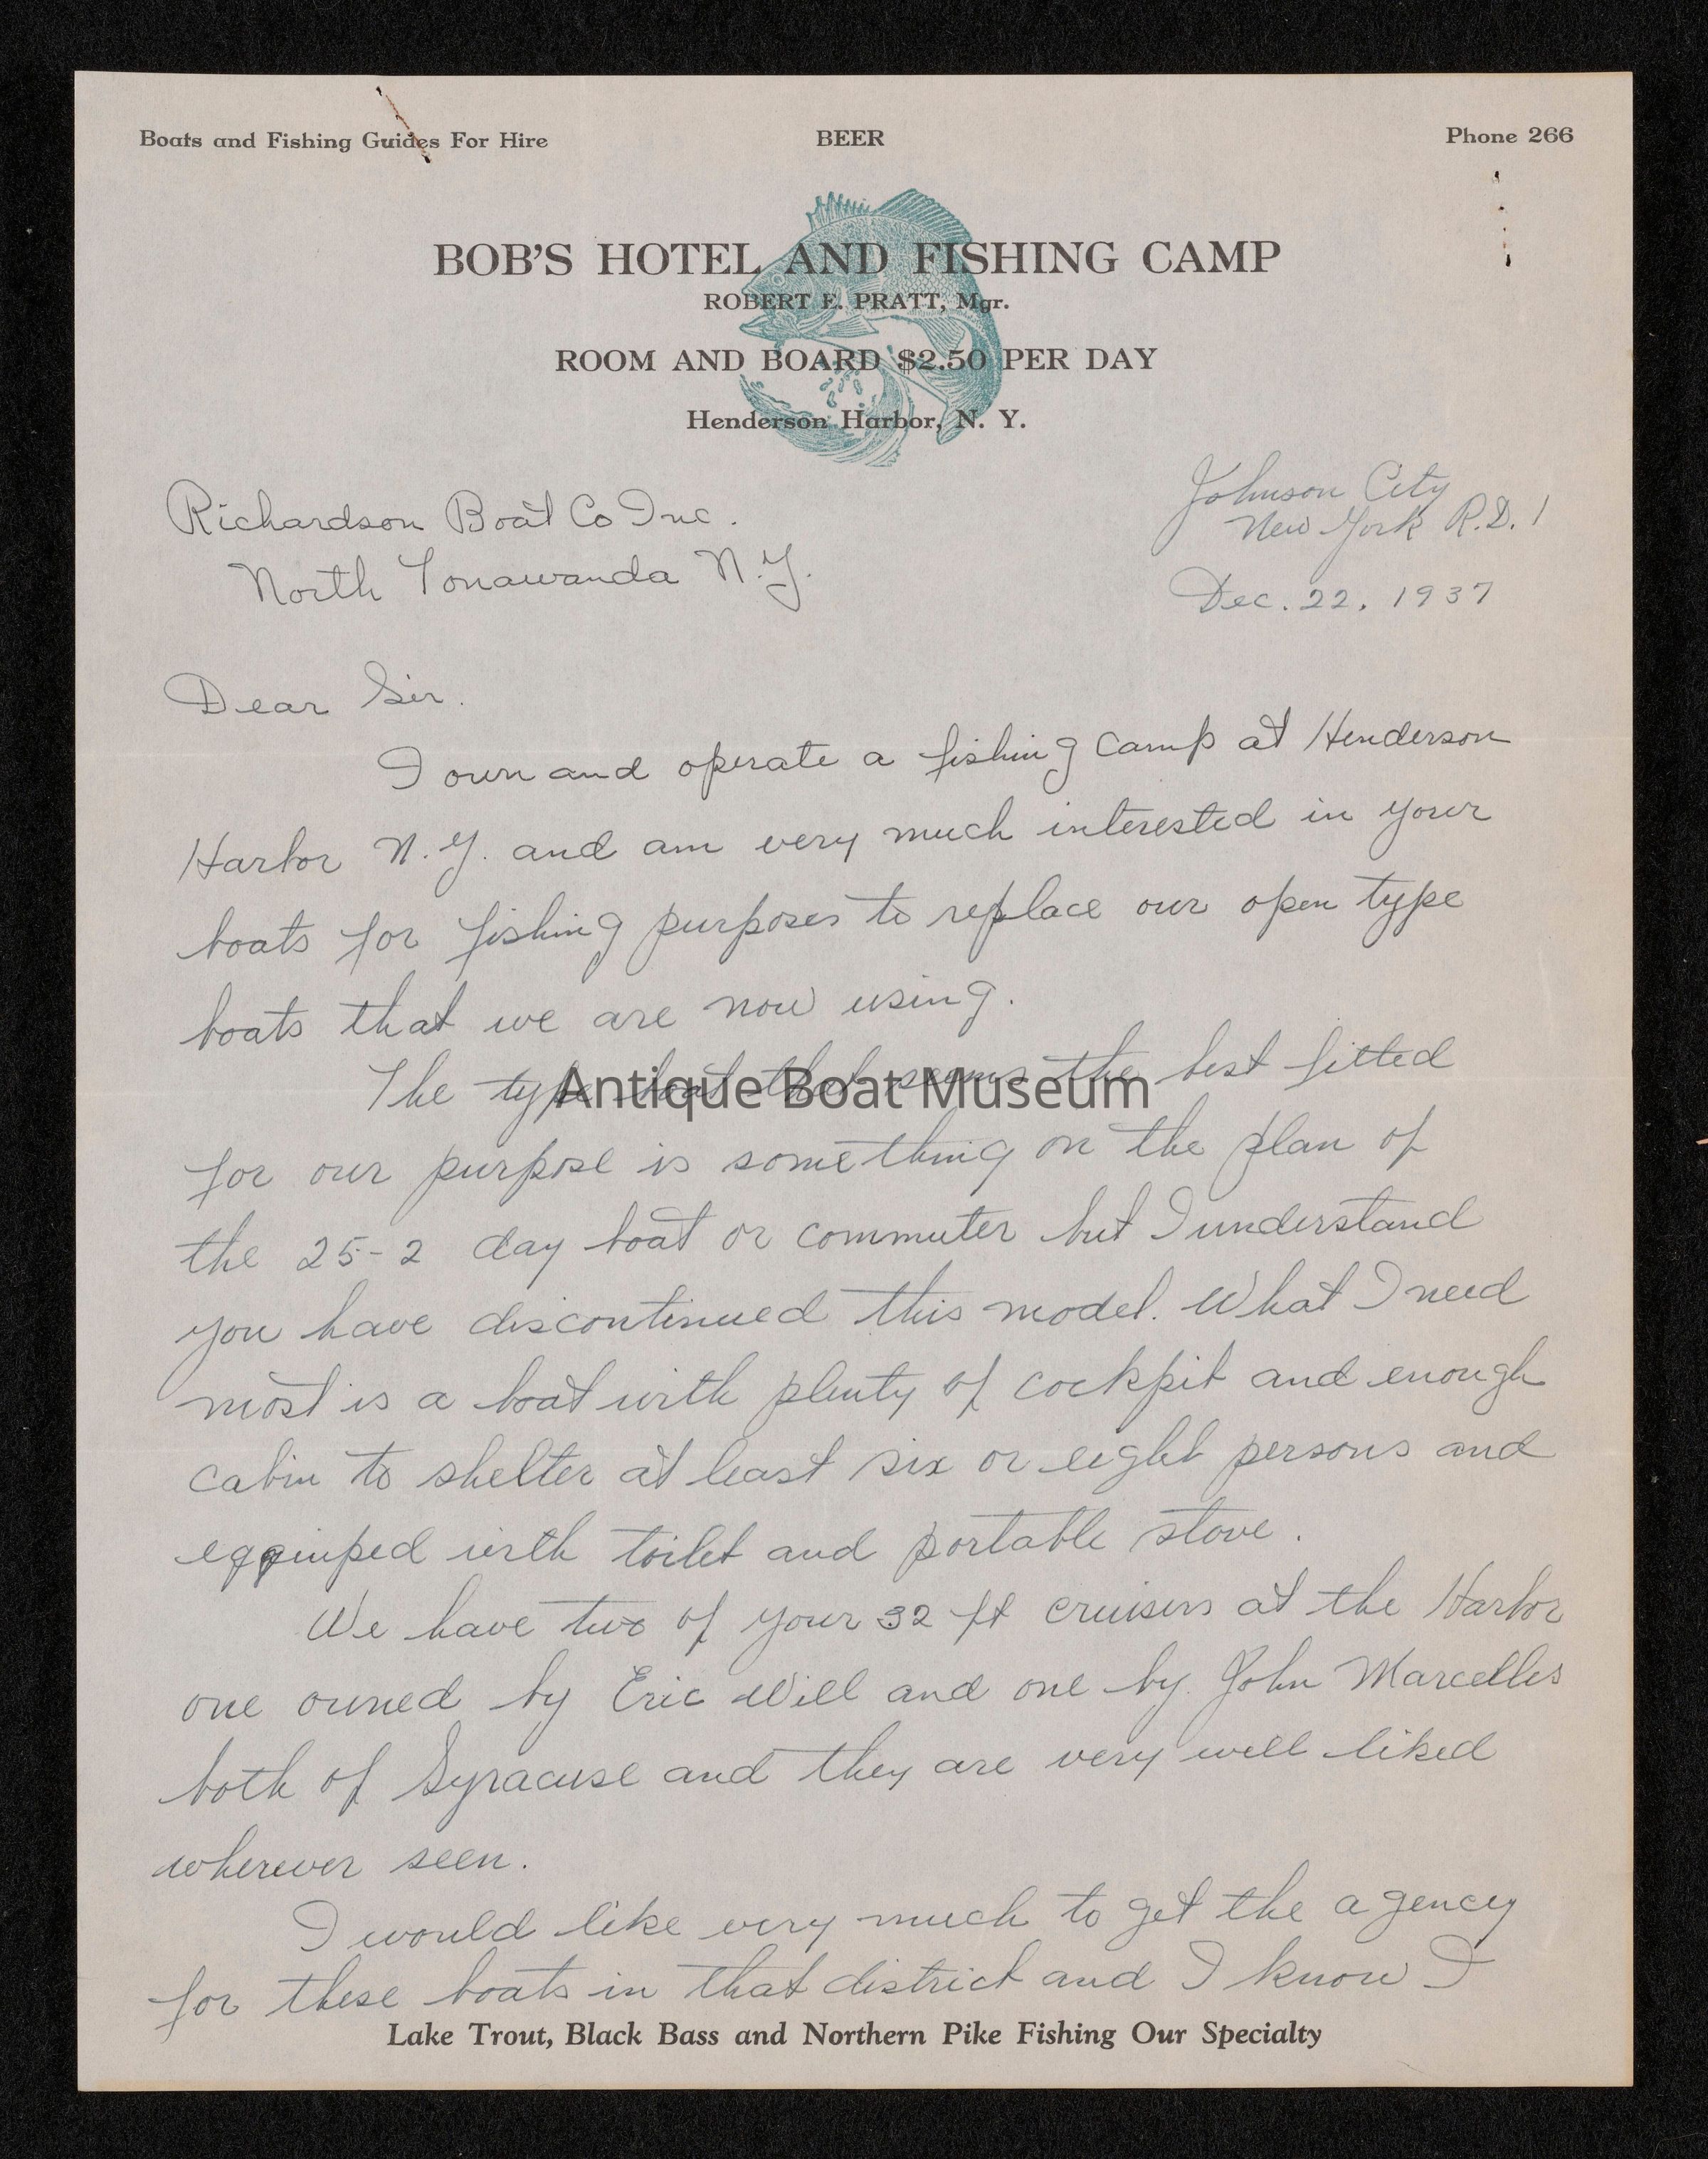 Boats and Fishing Guides For Hire BEER Phone 266
BOB'S HOTEL AND FISHING CAMP
ROBERT E. PRATT, Mgr.
ROOM AND BOARD $2.50 PER DAY
Henderson Harbor, N. Y.
Johnson City
New York R.D. 1
Dec. 22, 1937
Richardson Boat Co Inc.
North Tonawanda N.Y.
Dear Sir.
I own and operate a fishing camp at Henderson
Harbor N.Y. and am very much interested in your
boats for fishing purposes to replace our open type
boats that we are now using.
The type boat that seems the best fitted
Antique Boat Museum
for our purpose is something on the plan of
the 25-2 day boat or commuter but I understand
you have discontinued this model. What I need
most is a boat with plenty of cockpit and enough
cabin to shelter at least six or eight persons and
eqquiped with toilet and portable stove.
We have two of your 32 ft cruisers at the Harbor
one owned by Eric Will and one by John Marcelles
both of Syracuse and they are very well liked
wherever seen.
I would like very much to get the agency
for these boats in that district and I know I
Lake Trout, Black Bass and Northern Pike Fishing Our Specialty